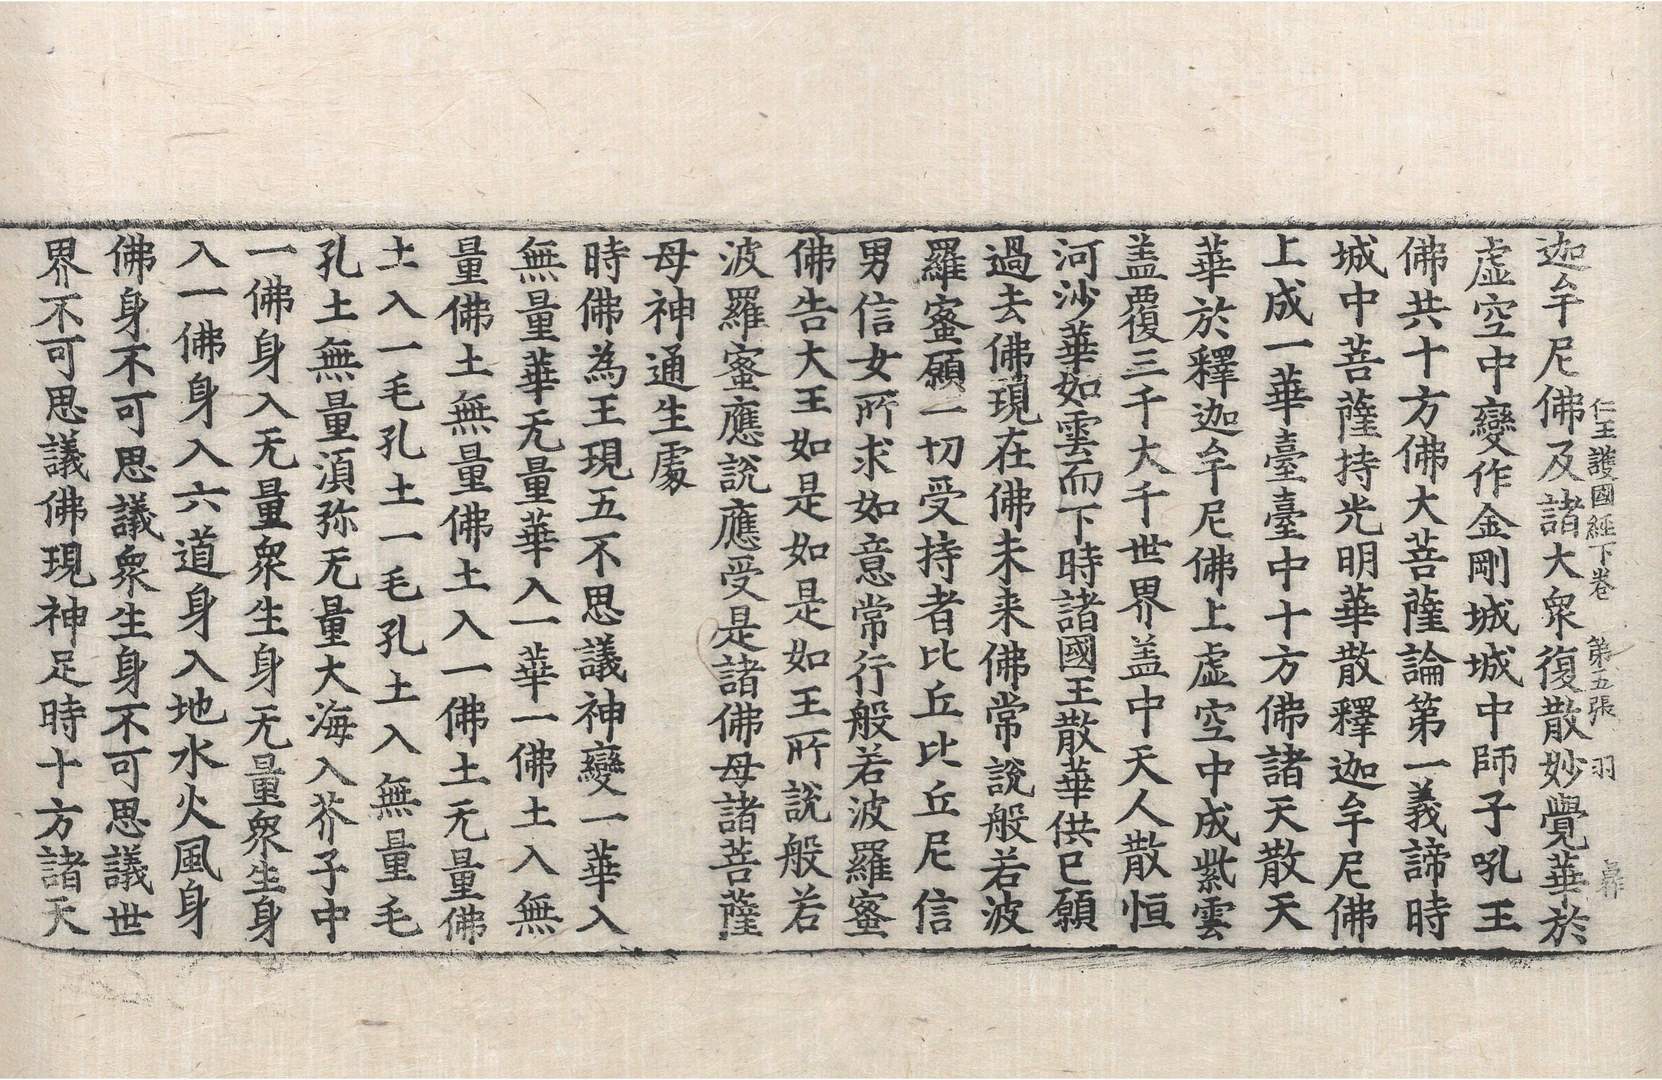 仁王護國經下卷 第五張 羽
迦牟尼佛及諸大衆復散妙覺華於
虛空中變作金剛城城中師子吼王
佛共十方佛大菩薩論第一義諦時
城中菩薩持光明華散釋迦牟尼佛
上成一華臺臺中十方佛諸天散天
華於釋迦牟尼佛上虛空中成紫雲
盖覆三千大千世界盖中天人散恒
河沙華如雲而下時諸國王散華供已願
過去佛現在佛未来佛常說般若波
羅蜜願一切受持者比丘比丘尼信
男信女所求如意常行般若波羅蜜
佛告大王如是如是如王所說般若
波羅蜜應說應受是諸佛母諸菩薩
母神通生處
時佛為王現五不思議神變一華入
無量華无量華入一華一佛土入無
量佛土無量佛土入一佛土无量佛
土入一毛孔土一毛孔土入無量毛
孔土無量湏弥无量大海入芥子中
一佛身入无量衆生身无量衆生身
入一佛身入六道身入地水火風身
佛身不可思議衆生身不可思議世
界不可思議佛現神足時十方諸天